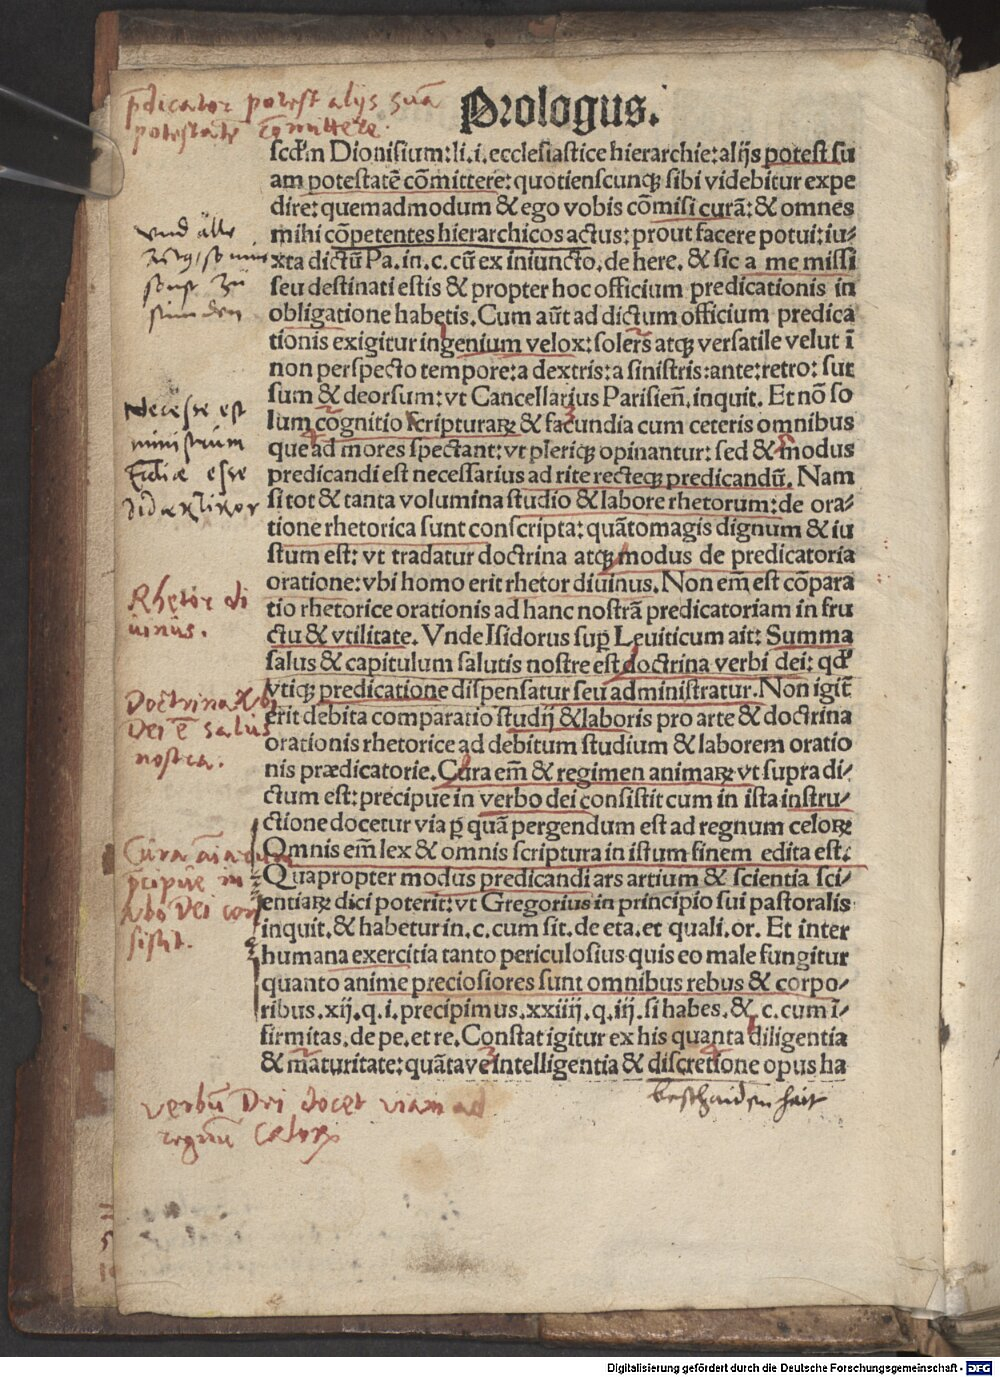 p̄dicator potest alijs suā
potestatē cōmittere.
Prologus.
scd'm Dionisium: li. i. ecclesiastice hierarchie: alijs potest su
am potestatē cōmittere: quotienscunqꝫ sibi videbitur expe
dire: quemadmodum & ego vobis cōmisi curā: & omnes
mihi cōpetentes hierarchicos actus: prout facere potui: iu-
xta dictū Pa. in. c. cū ex iniuncto. de here. & sic a me missi
seu destinati estis & propter hoc officium predicationis in
obligatione habetis. Cum aūt ad dictum officium predica
tionis exigitur ingenium velox: solers atqꝫ versatile velut ī
non perspecto tempore: a dextris: a sinistris: ante: retro: sur
sum & deorsum: vt Cancellarius Parisień. inquit. Et nō so
lum cognitio scripturaꝝ & facundia cum ceteris omnibus
que ad mores spectant: vt pleriqꝫ opinantur: sed & modus
predicandi est necessarius ad rite recteqꝫ predicandū. Nam
si tot & tanta volumina studio & labore rhetorum: de ora-
tione rhetorica sunt conscripta: quātomagis dignum & iu
stum est: vt tradatur doctrina atqꝫ modus de predicatoria
oratione: vbi homo erit rhetor diuinus. Non em̄ est cōpara
tio rhetorice orationis ad hanc nostrā predicatoriam in fru
ctu & vtilitate. Vnde Isidorus sup̄ Leuiticum ait: Summa
salus & capitulum salutis nostre est doctrina verbi dei: qd'
vtiqꝫ predicatione dispensatur seu administratur. Non igit̄
erit debita comparatio studij & laboris pro arte & doctrina
orationis rhetorice ad debitum studium & laborem oratio
nis prædicatorie. Cura em̄ & regimen animaꝝ vt supra di-
ctum est: precipue in verbo dei consistit cum in ista instru-
ctione docetur via p̄ quā pergendum est ad regnum celoꝝ
Omnis em̄ lex & omnis scriptura in istum finem edita est.
Quapropter modus predicandi ars artium & scientia sci-
entiaꝝ dici poterit: vt Gregorius in principio sui pastoralis
inquit. & habetur in. c. cum sit. de eta. et quali. or. Et inter
humana exercitia tanto periculosius quis eo male fungitur
quanto anime preciosiores sunt omnibus rebus & corpo-
ribus. xij. q. i. precipimus. xxiiij. q. iij. si habes. & c. cum ī-
firmitas. de pe. et re. Constat igitur ex his quanta diligentia
& maturitate: quātave intelligentia & discretione opus ha
vnd alle
Necesse est
ministrum
esse
Rhetor di
uinus.
Doctrina
Dei ē salus
nostra.
Cura
p̄cipue in
Dei con
sistit.
verbū Dei docet viam ad
regnū
bescheidenheit
Digitalisierung gefördert durch die Deutsche Forschungsgemeinschaft - DFG